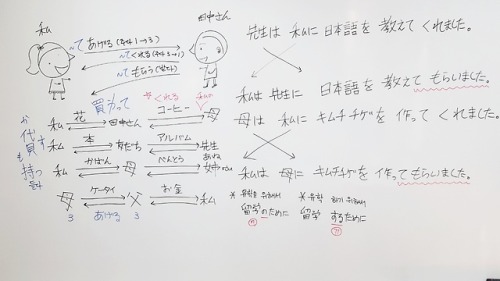 私
田中さん
~て あげる
~て くれる
~て もらう
買って
* くれる
私の
私 花 田中さん コーヒー 母
私 本 友だち アルバム 先生
私 かばん 母 べんとう
母 ケータイ 父 お金 私
3 あげる 3
貸す
持つ
先生は 私に 日本語を 教えて くれました。
私は 先生に 日本語を 教えて もらいました。
母は 私に キムチチゲを 作って くれました。
私は 母に キムチチゲを 作ってもらいました。
* 유학을 위해서
留学 のために
* 유학 하기 위해서
留学 するために